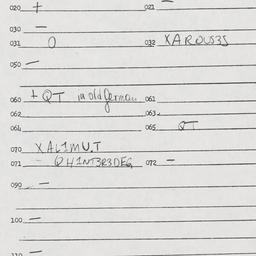 020 + 021
030 —
031 0 032 XAROUS3S
050 —
060 + QT in old German 061
062 063
064 065 QT
070 XAL1MU.T
071 - QH1NT3R3DEG 072 —
090 —
100 —
110 —